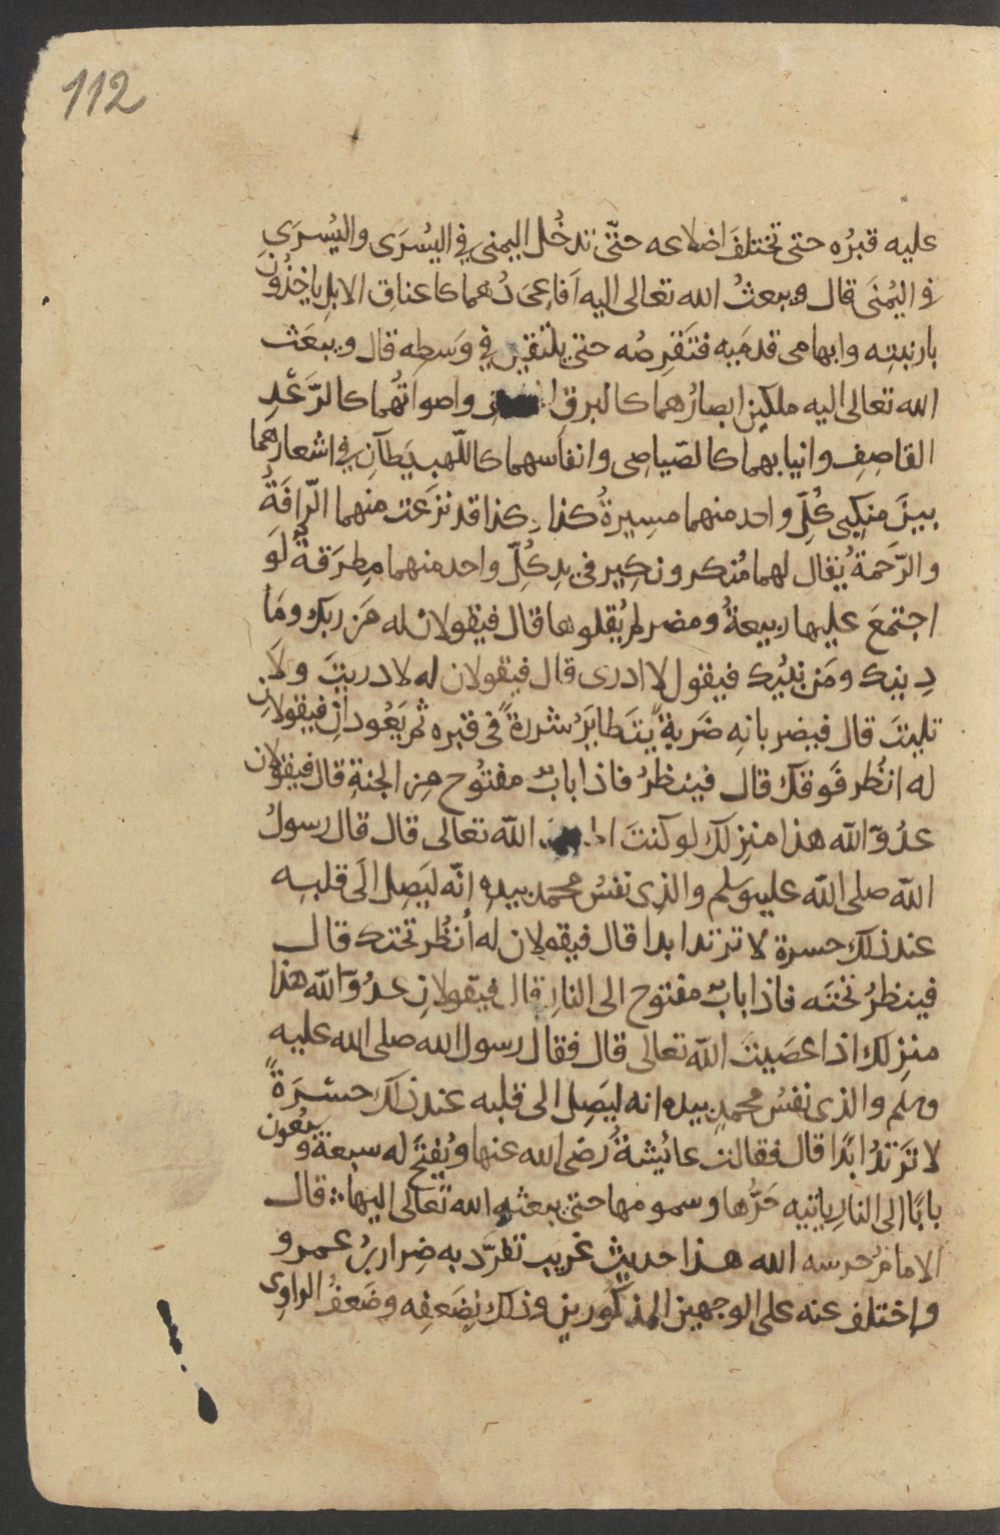 112
عليه قبرُه حتى تختلفَ اضلاعه حتّى تدخُل اليمنى في اليُسرَى واليُسرَى
في اليُمنَى قال ويبعثُ الله تعالى اليه اَفاعىَ دُهما كاعناقِ الابلِ ياخذُونَ
بارنبتِه وابهامى قدمَيه فتَقرِضُه حتى يلتقين في وَسطِه قال ويبعَث
الله تعالى اليه ملكين ابصارُهما كالبرقِ واصواتُهما كالرَّعْدِ
القاصِفِ وانيابهما كالصّياصِى وانفاسهما كاللّهب يَطآنِ في اشعارهما
بينَ منكِبى كُلِّ واحد منهما مسِيرةُ كذا وكذا قد نزعَت منهما الرّافَةُ
والرّحَمةُ يُقال لهما مُنكر ونكِير في يدِ كُلِّ واحد منهما مِطرَقةٌ لَو
اجتمعَ عليها ربيعةُ ومضر لم يُقلوها قال فيقولان له مَن ربّك ومَا
دِينك ومَن نبيُّك فيقول لا ادرى قال فيقولان له لا دريتَ ولاَ
تليتَ قال فيضربانِه ضَربةً يتَطايَرُ شررةً في قبره ثم يَعُودانِ فيقولانِ
له انظُر فَوقَك قال فينظرُ فاذا بابٌ مفتُوح مِن الجنةِ قال فيقولان
عدُوَّ الله هذا منزِلك لو كنتَ الله تعالى قال قال رسولُ
الله صلى الله عليه وسلم والذِى نفسُ محمد بيدِه انّه ليَصِل الَى قلبِه
عند ذلك حسرة لا ترتد ابدا قال فيقولان له اُنظُر تحتك قال
فينظرُ تحتَه فاذا بابٌ مفتوح الى النارِ قال فيقولانِ عدُوَّ الله هذا
منزِلك اذا عصَيتَ الله تعالى قال فقال رسول الله صلى الله عليه
وسلم والذى نفسُ محمدٍ بيدِه انه ليَصِل الى قلبه عند ذلك حسْرَةً
لا تَرتدُّ ابدًا قال فقالت عائشةُ رضى الله عنها ويُفتَح له سبعة وسبعُون
بابًا الى النارِ ياتيه حَرُّها وسمومها حتى يبعثه الله تعالى اليها قال
الامامُ حرسه الله هذا حديث غريب تفرّد به ضِرار بنُ عمرو
واختلف عنه على الوجهين المذكورين وذلك لضَعفِه وضَعفُ الراوِى